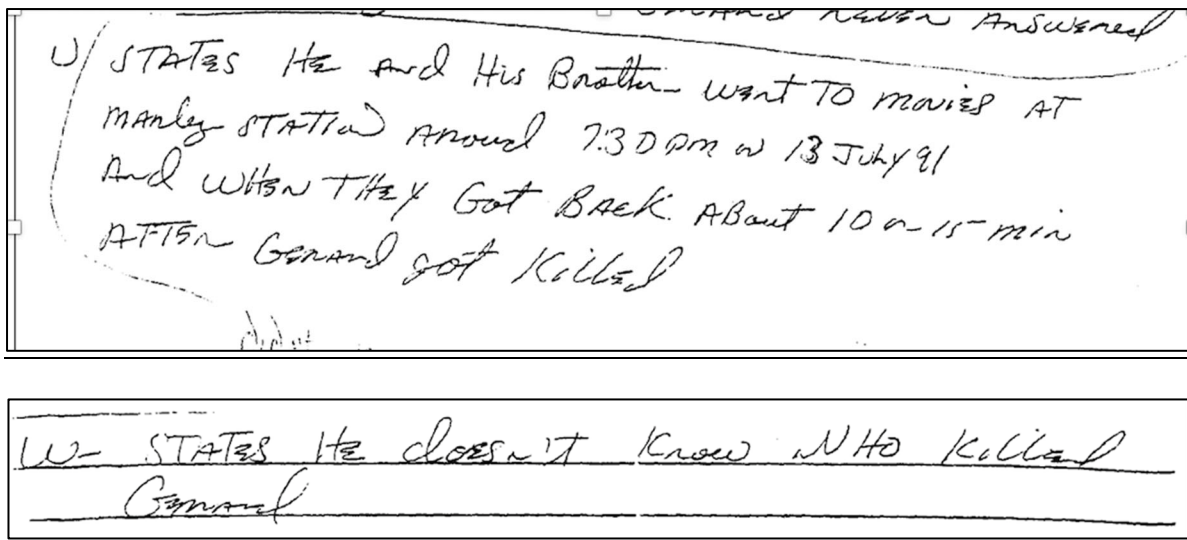 Never Answered
W/ STATES HE And His Brother Went TO movies AT
Manley STATION Around 7:30 pm on 13 July 91
And WHEN THEY Got BACK. ABout 10 or 15 min
AFTER Gerard got Killed
didn't
W- STATES HE doesn't Know WHO Killed
Gerard